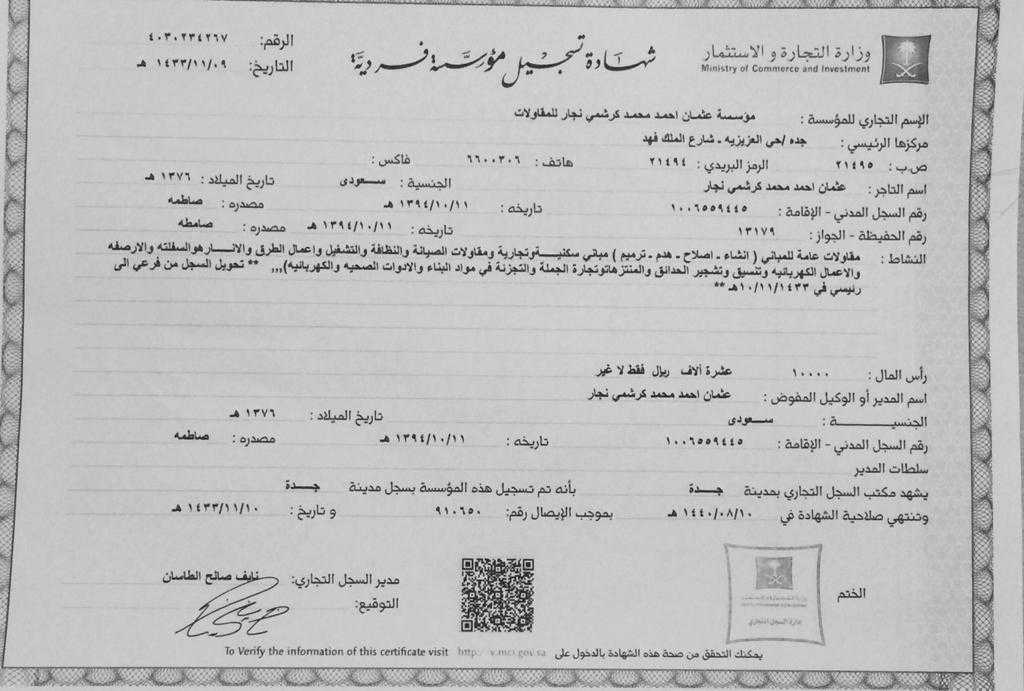 وزارة التجارة و الاستثمار
Ministry of Commerce and Investment
شهادة تسجيل مؤسسة فردية
الرقم: ٤٠٣٠٢٣٤٢٦٧
التاريخ: ١٤٣٣/١١/٠٩ هـ
الإسم التجاري للمؤسسة : مؤسسة عثمان احمد محمد كرشمي نجار للمقاولات
مركزها الرئيسي : جده /حى العزيزيه ـ شارع الملك فهد
ص.ب : ٢١٤٩٥ الرمز البريدي : ٢١٤٩٤ هاتف : ٦٦٠٠٣٠٦ فاكس :
اسم التاجر : عثمان احمد محمد كرشمي نجار الجنسية : سعودى تاريخ الميلاد : ١٣٧٦ هـ
رقم السجل المدني - الإقامة : ١٠٠٦٥٥٩٤٤٥ تاريخه : ١٣٩٤/١٠/١١ هـ مصدره : صاطمه
رقم الحفيظة - الجواز : ١٣١٧٩ تاريخه : ١٣٩٤/١٠/١١ هـ مصدره : صامطه
النشاط : مقاولات عامة للمباني ( انشاء - اصلاح - هدم - ترميم ) مباني سكنيةوتجارية ومقاولات الصيانة والنظافة والتشغيل واعمال الطرق والانارهوالسفلته والارصفه
والاعمال الكهربائيه وتنسيق وتشجير الحدائق والمنتزهاتوتجارة الجملة والتجزئة في مواد البناء والادوات الصحيه والكهربائيه),,, ** تحويل السجل من فرعي الى
رئيسي في ١٠/١١/١٤٣٣هـ **
رأس المال : ١٠٠٠٠ عشرة آلاف ريال فقط لا غير
اسم المدير أو الوكيل المفوض : عثمان احمد محمد كرشمي نجار
الجنسيـــة : سعودى تاريخ الميلاد : ١٣٧٦ هـ
رقم السجل المدني - الإقامة : ١٠٠٦٥٥٩٤٤٥ تاريخه : ١٣٩٤/١٠/١١ هـ مصدره : صاطمه
سلطات المدير
يشهد مكتب السجل التجاري بمدينة جدة بأنه تم تسجيل هذه المؤسسة بسجل مدينة جدة
وتنتهي صلاحية الشهادة في ١٤٤٠/٠٨/١٠ هـ بموجب الإيصال رقم: ٩١٠٦٥٠ و تاريخ : ١٤٣٣/١١/١٠ هـ
الختم
مدير السجل التجاري: نايف صالح الطاسان
التوقيع:
يمكنك التحقق من صحة هذه الشهادة بالدخول على
To Verify the information of this certificate visit